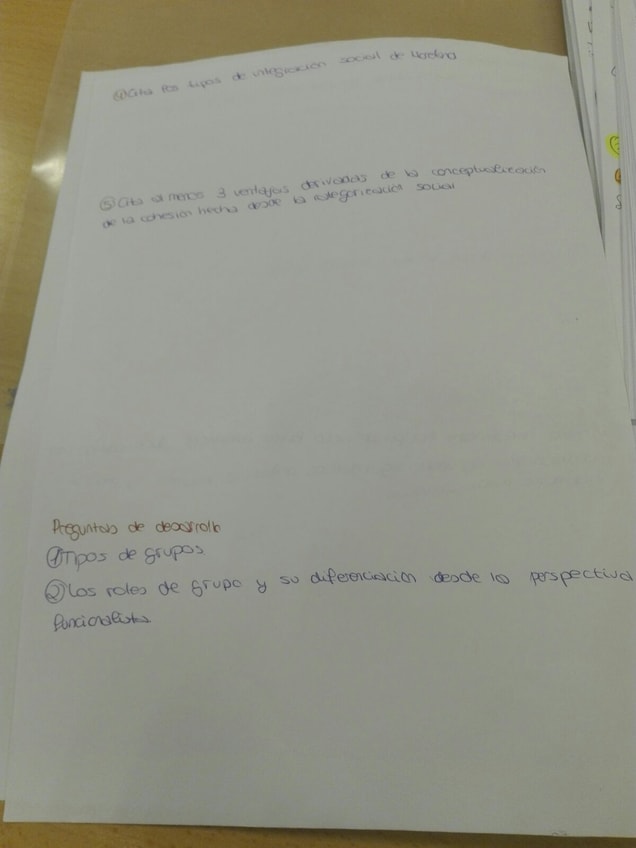 ④ Cita los tipos de integración social de Moreland
⑤ Cita al menos 3 ventajas derivadas de la conceptualización
de la cohesión hecha desde la categorización social
Preguntas de desarrollo
① Tipos de grupos
② Los roles de grupo y su diferenciación desde la perspectiva
funcionalista